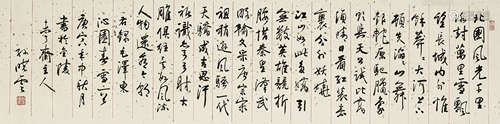 北國風光千里
冰封萬里雪飄
望長城內外惟
餘莽莽大河上下
頓失滔滔山舞
銀蛇原馳臘象
欲與天公試比高
須晴日看紅裝素
裹分外妖嬈
江山如此多嬌引
無數英雄競折
腰惜秦皇漢武
略輸文采唐宗宋
祖稍遜風騷一代
天驕成吉思汗
只識彎弓射大
雕俱往矣數風流
人物還看今朝
右錄毛澤東
沁園春雪一首
庚寅秋月
書於金陵
齋主人
孫曉雲